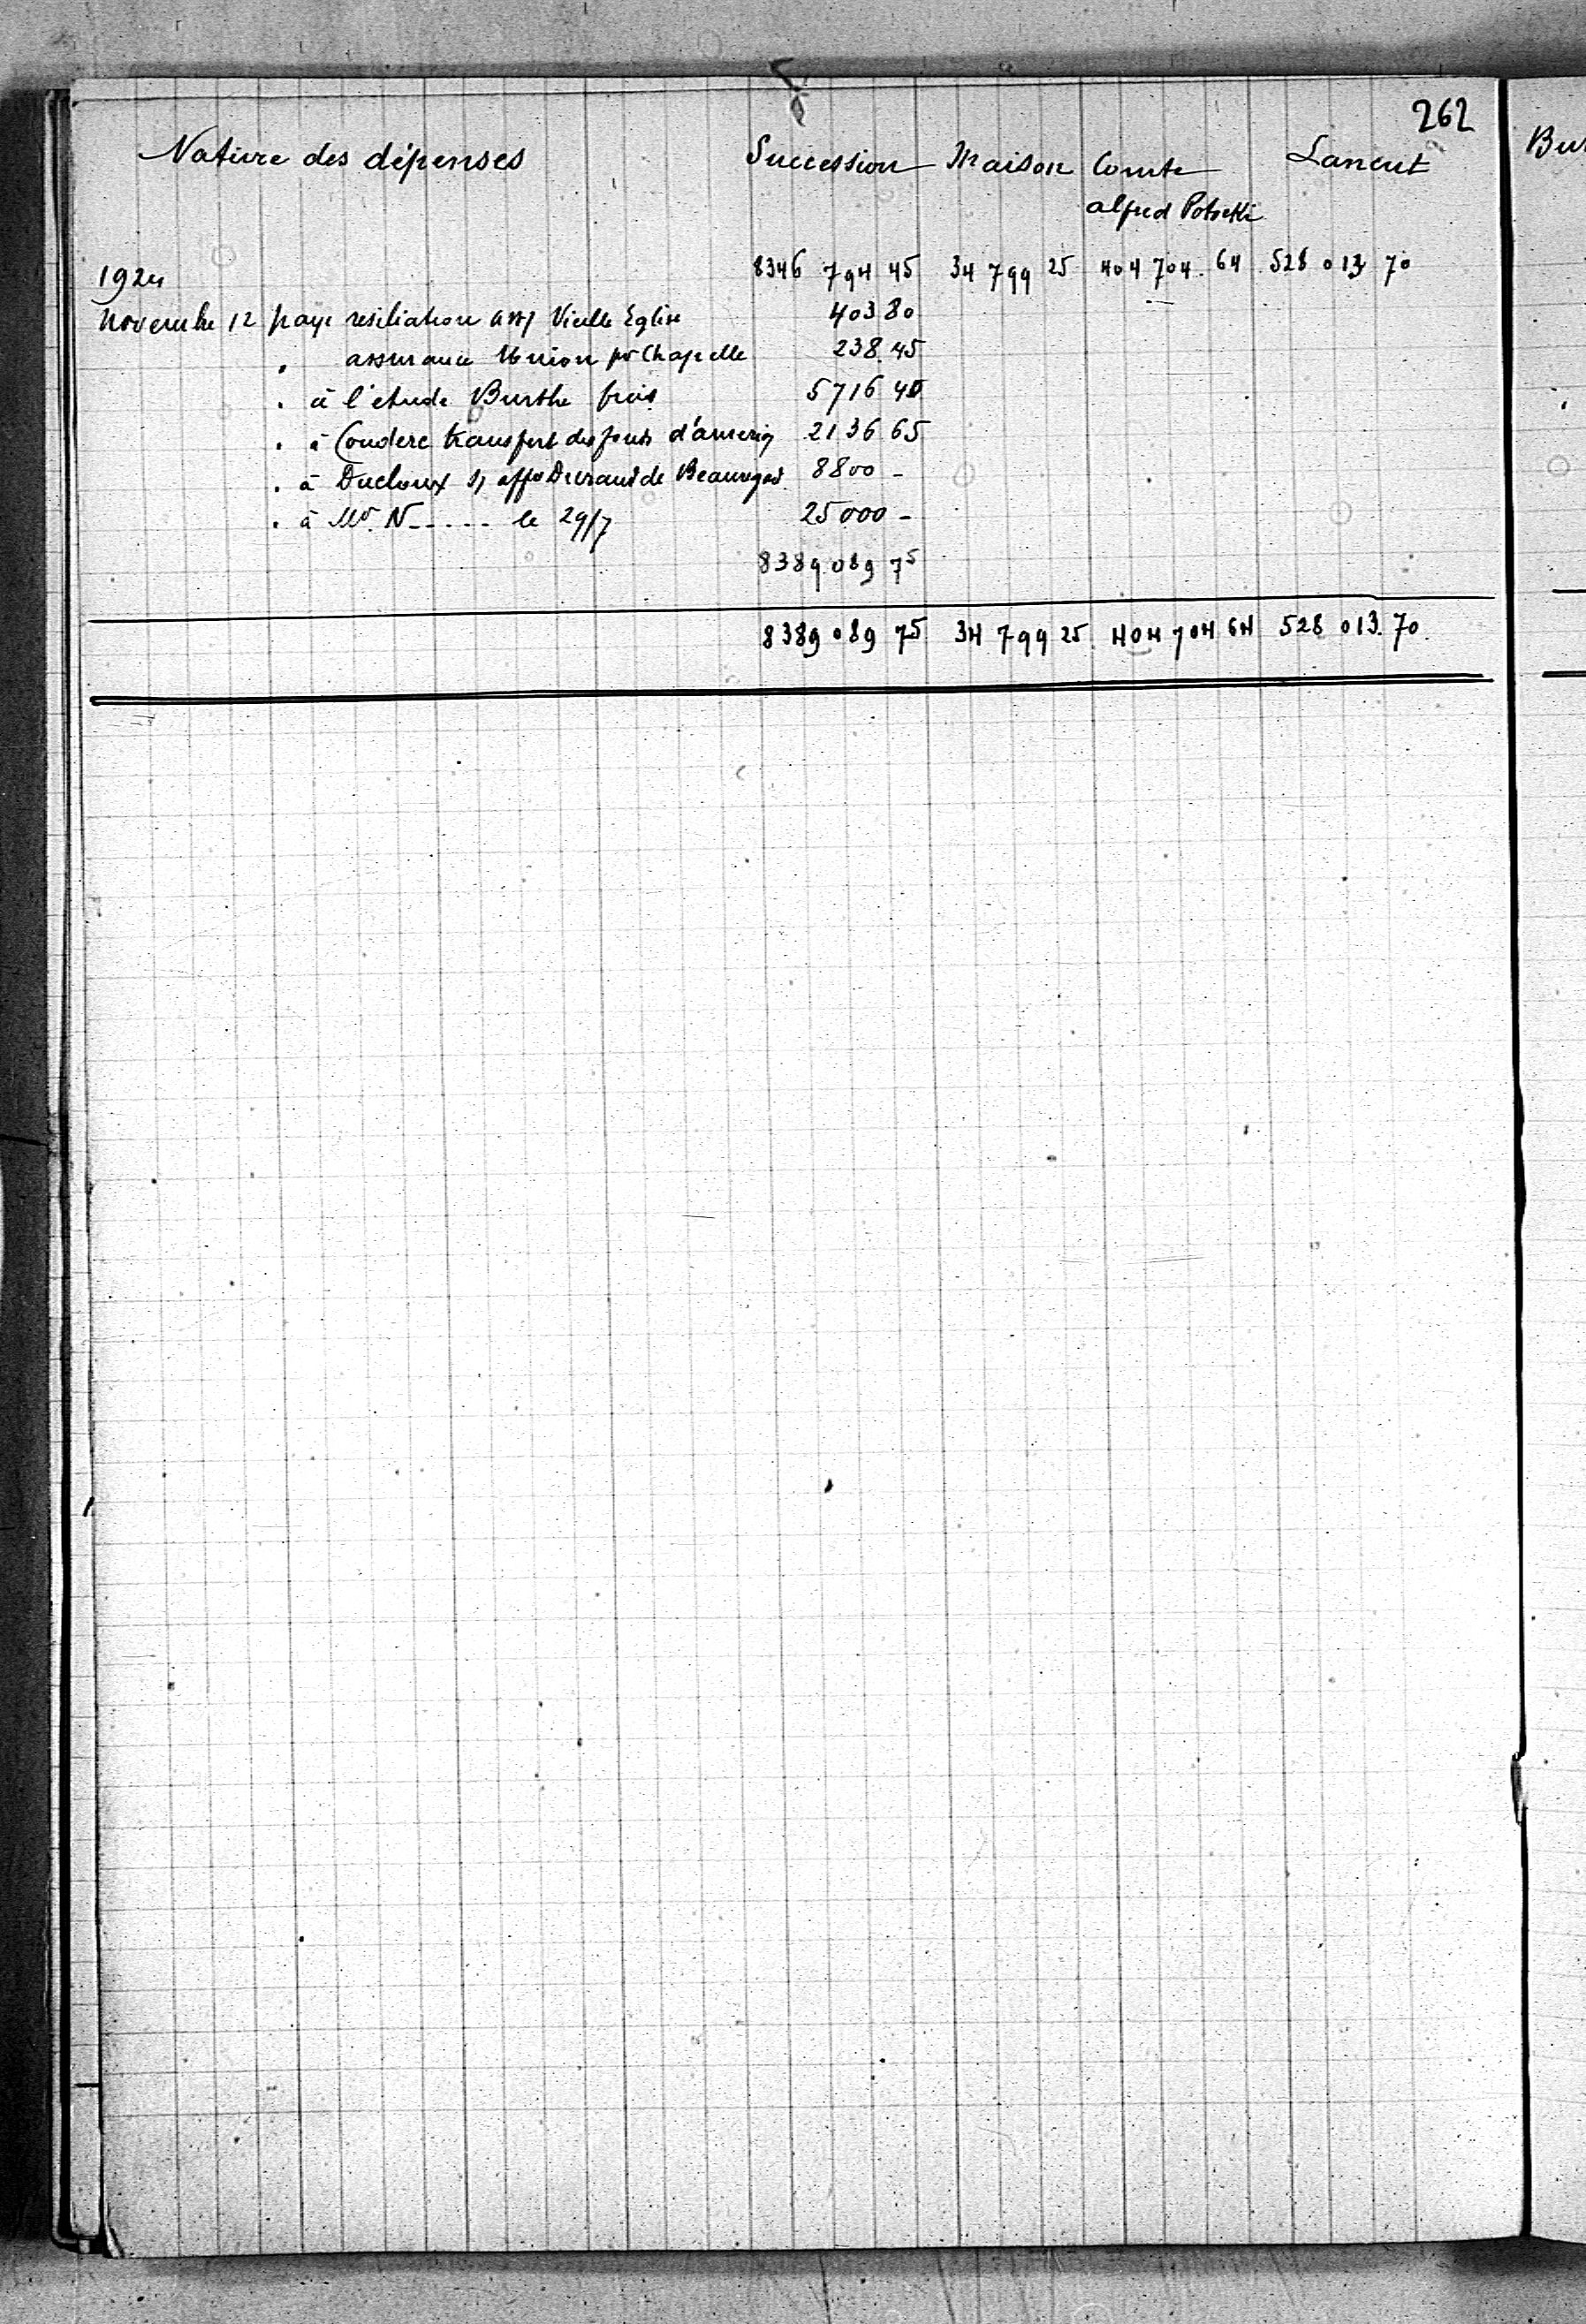 262
Nature des dépenses Succession Maison Comte Lancut
alfred Potocki
1924 8346 794 45 34 799 25 404 704.64 528 013 70
Novembre 12 payé résiliation ass/ Vieille Eglise 403 80
" assurance Union pr Chapelle 238.45
" à l'étude Burthe frais 5716 40
" à Coudere transfert des fonds d'ameriq 2136 65
" à Ducloux s/ affre Durand de Beauregard 8800 -
" à Mr. N----- le 29/7 25000 -
8389 089 75
8389 089 75 34 799 25 404 704 64 528 013.70